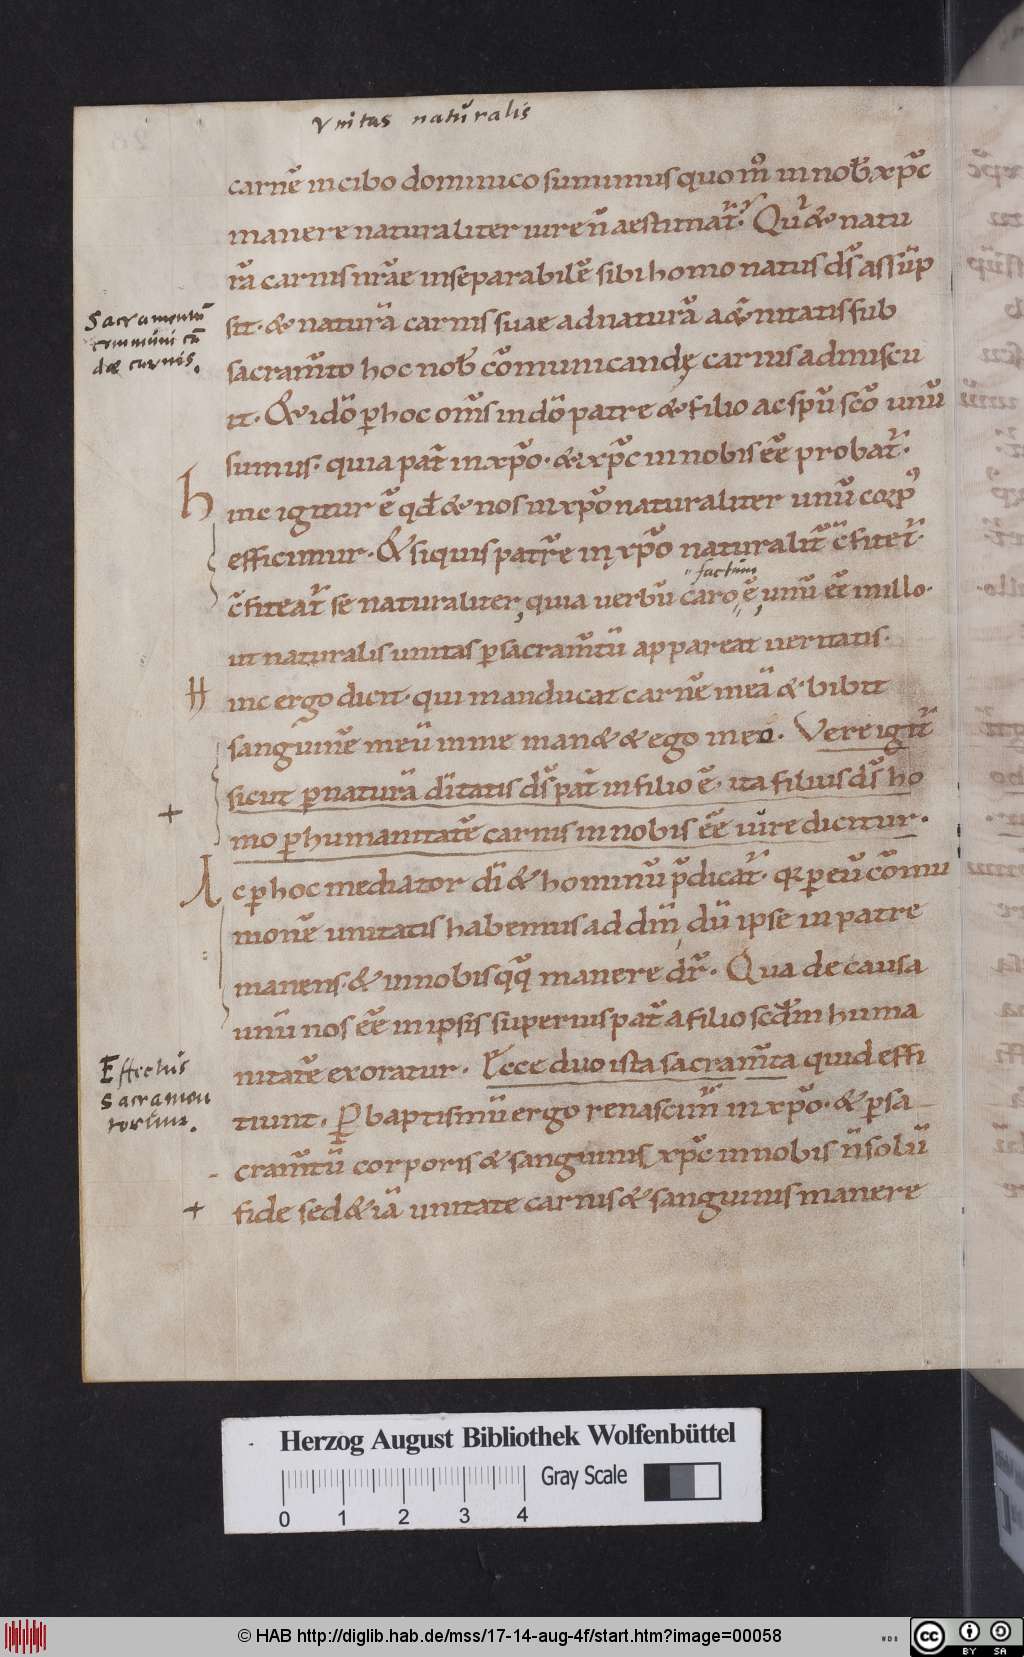 Vnitas naturalis
carnē in cibo dominico sumimus quom̊ in nob̄ xp̄c
manere naturaliter uire n̄ aestimat᷑. Qui & natu
rā carnis nr̄ae inseparabilē sibi homo natus ds̄ assūp
sit. & naturā carnis suae ad naturā aet̄nitatis sub
Sacramentū
communicā
dæ carnis.
sacram̄to hoc nob̄ cōmunicandę carnis admiscu
it. Et idō ꝑ hoc om̄s in dō patre & filio ac spū scō unū
sumus. quia pat̄ in xp̄o. & xp̄c in nobis eē probat᷑.
hinc igitur ē qđ & nos in xp̄o naturaliter unū corp᷒
efficimur. Et si quis patrē in xp̄o naturalit̄ c̄fitet᷑.
factum
c̄fiteat᷑ se naturaliter, quia uerbū caro ē, unū eēt in illo.
ut naturalis unitas ꝑ sacram̄tū appareat ueritatis.
Hinc ergo dicit. qui manducat carnē meā & bibit
sanguinē meū in me manet & ego in eo. Vere igit᷑
sicut ꝑ naturā dīitatis ds̄ pat̄ in filio ē. ita filius ds̄ ho
mo ꝑ humanitatē carnis in nobis eē iure dicitur.
Ac ꝑ hoc mediator dī & hominū p̄dicat᷑. qꝛ ꝑ eū cōmu
nionē unitatis habemus ad dm̄, dū ipse in patre
manens. & in nobis qq̄ manere dr̄. Qua de causa
unū nos eē in ipsis superius pat̄ a filio scđm huma
nitatē exoratur. Ecce duo ista sacram̄ta quid effi
Effectus
Sacramen
torum.
tiunt. Ꝑ baptismū ergo renascim̄ in xp̄o. & ꝑ sa
cram̄tū corporis & sanguinis xp̄c in nobis n̄ solū
fide sed & iā unitate carnis & sanguinis manere
Herzog August Bibliothek Wolfenbüttel
Gray Scale
0 1 2 3 4
© HAB http://diglib.hab.de/mss/17-14-aug-4f/start.htm?image=00058
WDB
cc BY SA